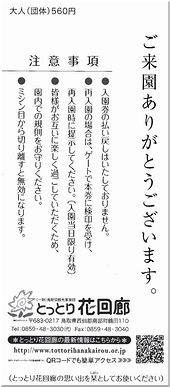 大人(団体)560円
ご来園ありがとうございます。
注意事項
●入園券の払い戻しはいたしておりません。
●再入園の場合は、ゲートで本券に検印を受け、
再入園時に提示してください。(入園当日限り有効)
●皆様がお互いに楽しく過ごしていただくため、
園内での規則をお守りください。
●ミシン目から切り離すと無効になります。
とっとり花回廊
〒683-0217 鳥取県西伯郡南部町鶴田110
Tel:0859-48-3030(代) Fax:0859-48-3040
★とっとり花回廊の最新情報はこちらから★
http://www.tottorihanakairou.or.jp
QRコードでも簡単アクセス>>>
(とっとり花回廊の思い出を栞としてお使いください)